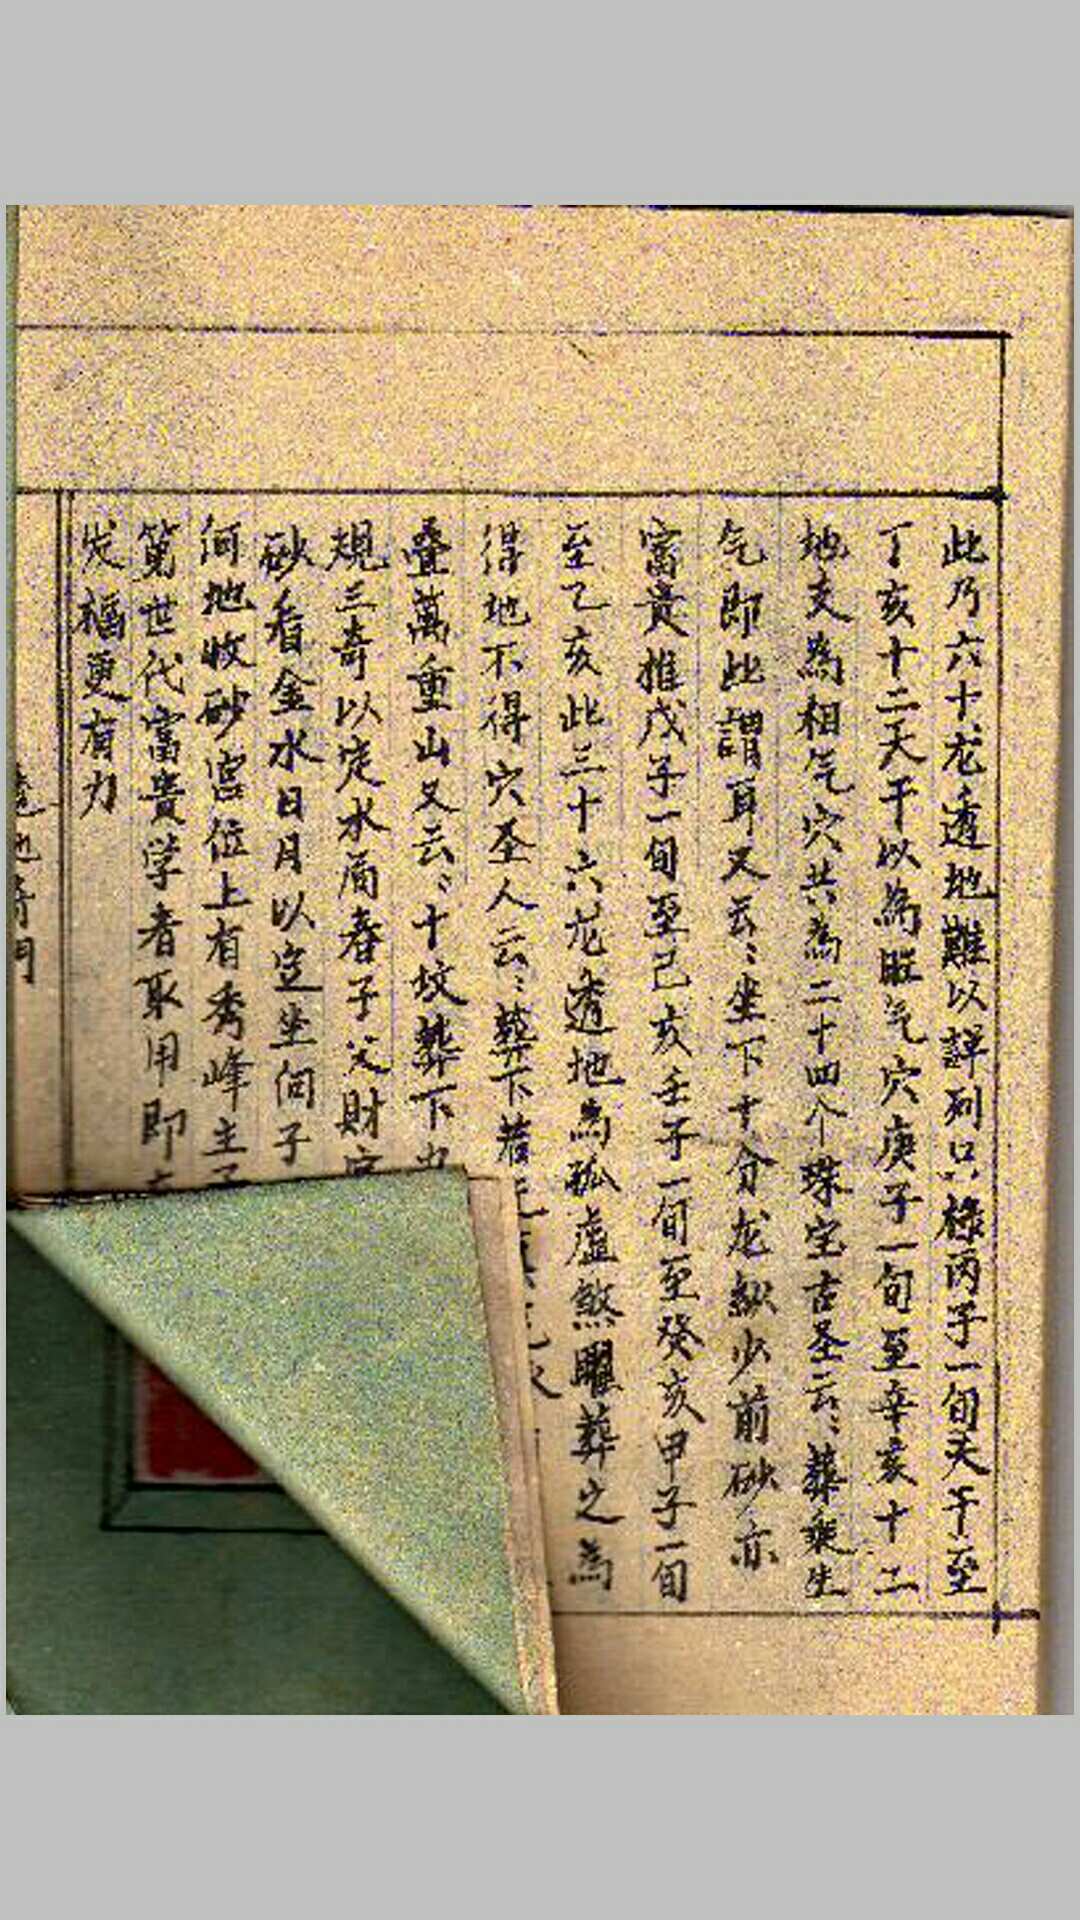 此乃六十龙透地难以詳列只、椂丙子一旬天干至
丁亥十二天干以為旺气穴庚子一旬至辛亥十二
地支為相气穴共為二十四个珠宝古圣云:葬乘生
气即此謂耳又云:坐下十分龙缺少前砂亦
富贵推戊子一旬至己亥壬子一旬至癸亥甲子一旬
至乙亥此三十六龙透地為孤虚煞曜葬之為
得地不得穴圣人云:葬下若
叠萬重山又云:十坟葬下
規三奇以定水局看子父財
砂看金水日月以定坐個子
何地收砂宫位上有秀峰主
第世代富貴学者取用即
发福更有力
透地奇门